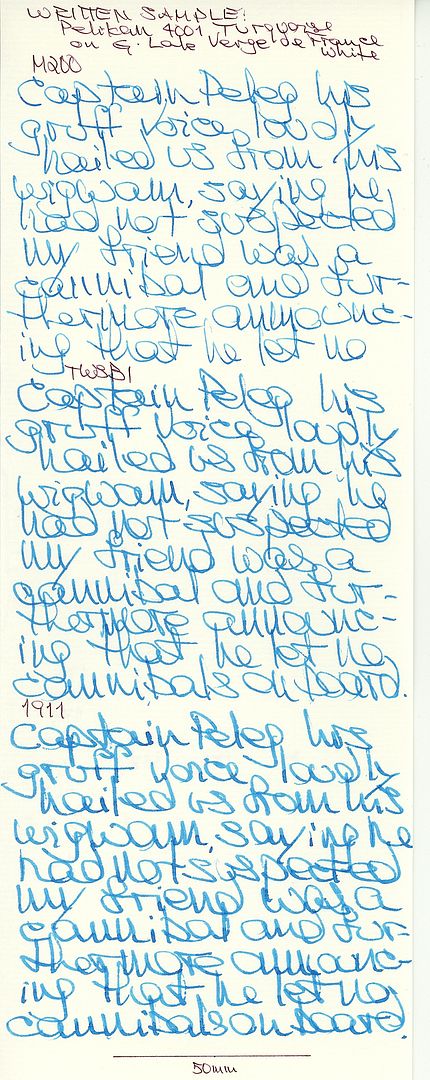 WRITTEN SAMPLE:
Pelikan 4001 Turquoise
on G. Lalo Verge de France
White
M200
Captain Peleg his
gruff voice loudly
hailed us from his
wigwam, saying he
had not suspected
my friend was a
cannibal and fur-
thermore announc-
ing that he let no
TWSBI
Captain Peleg his
gruff voice loudly
hailed us from his
wigwam, saying he
had not suspected
my friend was a
cannibal and fur-
thermore announc-
ing that he let no
cannibals on board.
1911
Captain Peleg his
gruff voice loudly
hailed us from his
wigwam, saying he
had not suspected
my friend was a
cannibal and fur-
thermore announc-
ing that he let no
cannibals on board.
50mm